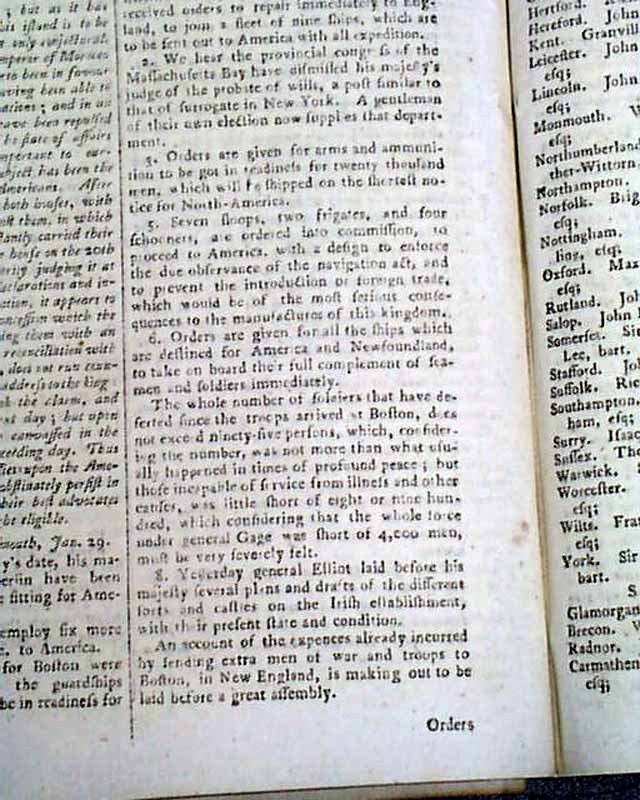 but as it has
island is to be
only conjectural.
emperor of Morocco
to been in favour
having been able to
; and in an
have been repulsed
he state of affairs
important to our-
subject has been the
Americans. After
both houses, with
them, in which
carried their
house on the 20th
judging it at
declarations and in-
it appears to
concession which the
ing them with an
reconciliation with
does not run coun-
address to the king:
the claim, and
day; but upon
canvassed in the
ceeding day. This
upon the Ame-
obstinately persist in
their best advocates
be eligible.
Jan. 29.
y's date, his ma-
berlin have been
fitting for Ame-
employ six more
to America.
for Boston were
the guardships
be in readiness for
received orders to repair immediately to Eng-
land, to join a fleet of nine ships, which are
to be sent out to America with all expedition.
2. We hear the provincial congress of the
Massachusetts Bay have dismissed his majesty's
judge of the probate of wills, a post similar to
that of surrogate in New York. A gentleman
of their own election now supplies that depart-
ment.
3. Orders are given for arms and ammuni-
tion to be got in readiness for twenty thousand
men, which will be shipped on the shortest no-
tice for North-America.
5. Seven sloops, two frigates, and four
schooners, are ordered into commission, to
proceed to America, with a design to enforce
the due observance of the navigation act, and
to prevent the introduction of foreign trade,
which would be of the most serious conse-
quences to the manufactures of this kingdom.
6. Orders are given for all the ships which
are destined for America and Newfoundland,
to take on board their full complement of sea-
men and soldiers immediately.
The whole number of soldiers that have de-
serted since the troops arrived at Boston, does
not exceed ninety-five persons, which, consider-
ing the number, was not more than what usu-
ally happened in times of profound peace; but
those incapable of service from illness and other
causes, was little short of eight or nine hun-
dred, which considering that the whole force
under general Gage was short of 4,000 men,
must be very severely felt.
8. Yesterday general Elliot laid before his
majesty several plans and drafts of the different
forts and castles on the Irish establishment,
with their present state and condition.
An account of the expences already incurred
by sending extra men of war and troops to
Boston, in New England, is making out to be
laid before a great assembly.
Orders
Hertford.
Hereford. John
Kent. Granvill
Leicester. John
esq;
Lincoln. John
esq;
Monmouth. W
esq;
Northumberland
ther-Wittorn
Northampton.
Norfolk. Brig
esq;
Nottingham.
ling, esq;
Oxford. Max
esq;
Rutland. Joh
Salop. John
Somerset. Sir
Lee, bart.
Stafford. Joh
Suffolk. Ric
Southampton.
ham, esq;
Surry. Isaac
Sussex. Tho
Warwick.
Worcester.
esq;
Wilts. Fran
esq;
York. Sir
bart.
S
Glamorgan
Brecon. W
Radnor.
Carmarthen
esq;